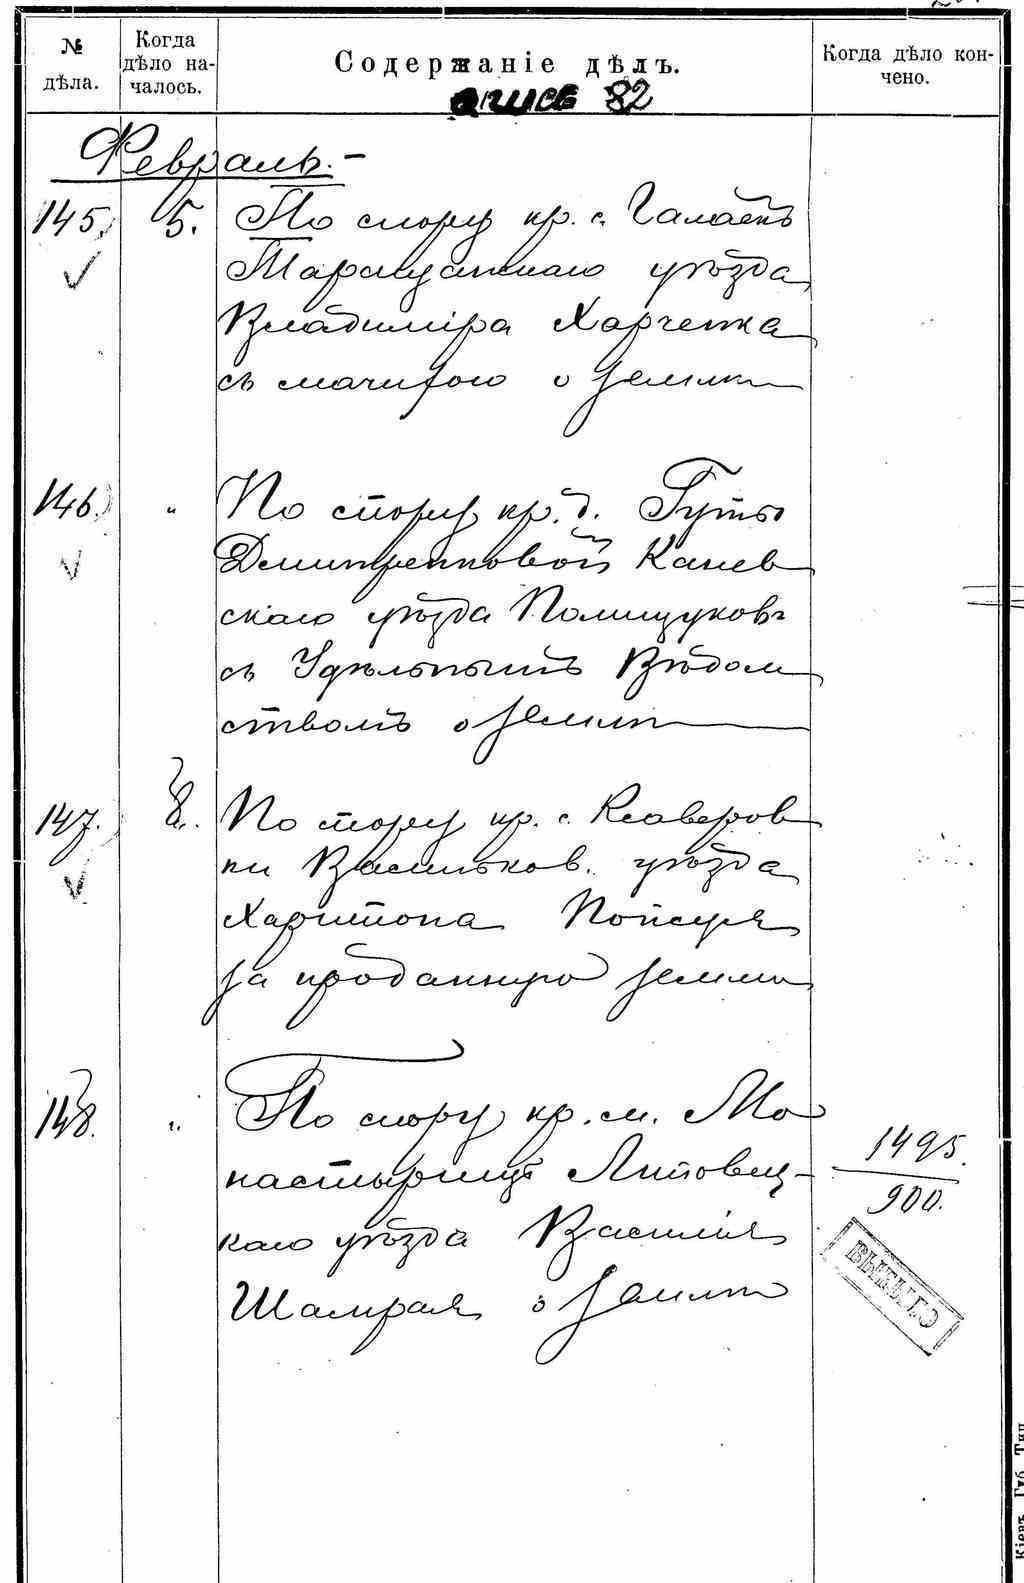 № дѣла.
Когда дѣло на-чалось.
Содержаніе дѣлъ.
Когда дѣло кон-чено.
опись 82
Февраль.-
145. 5. По спору кр. с. Галаекъ
Таращанскаго уѣзда
Владиміра Харченка
съ мачихою о землѣ
146. " По спору кр. д. Гуты
Дмитренковой Канев
скаго уѣзда Полищуковъ
съ Удѣльнымъ Вѣдом
ствомъ о землѣ
147. 8. По спору кр. с. Ксаверов
ки Васильков. уѣзда
Харитона
за проданную землю
148. " По спору кр. м. Мо
настырищъ Липовец-
каго уѣзда Василія
Шамрая о землѣ
1495.
900.
ВЫБЫЛО
Кіевъ. Губ. Тип.